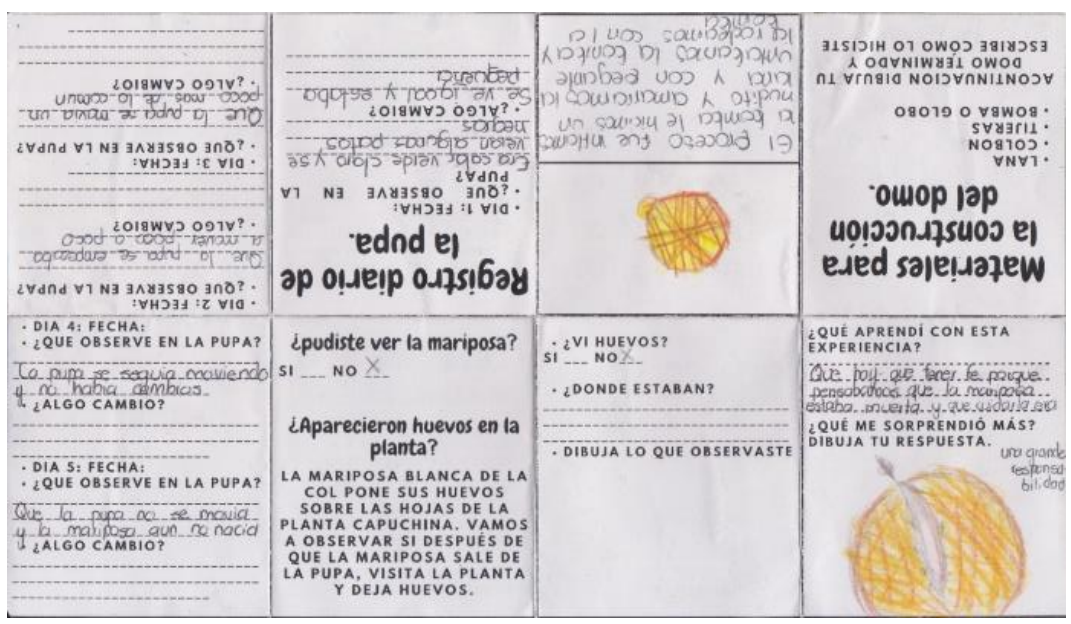 Materiales para
la construcción
del domo.
• LANA
• COLBON
• TIJERAS
• BOMBA O GLOBO
ACONTINUACION DIBUJA TU
DOMO TERMINADO Y
ESCRIBE CÓMO LO HICISTE
El proceso fue inflamos
la bomba le hicimos un
nudito y amarramos la
lana y con pegante
untabamos la bomba y
la rodeamos con la
bomba
Registro diario de
la pupa.
• DIA 1: FECHA:
• ¿QUE OBSERVE EN LA
PUPA?
Era color verde claro y se
veian algunas patas
negras
• ¿ALGO CAMBIO?
Se ve igual y estaba
pequeña
• DIA 2: FECHA:
• ¿QUE OBSERVE EN LA PUPA?
Que la pupa se empezaba
a mover poco a poco
• ¿ALGO CAMBIO?
• DIA 3: FECHA:
• ¿QUE OBSERVE EN LA PUPA?
Que la pupa se movia un
poco mas de lo comun
• ¿ALGO CAMBIO?
• DIA 4: FECHA:
• ¿QUE OBSERVE EN LA PUPA?
La pupa se seguia moviendo
y no habia cambios
• ¿ALGO CAMBIO?
• DIA 5: FECHA:
• ¿QUE OBSERVE EN LA PUPA?
Que la pupa no se movia
y la maliposa aun no nacia
• ¿ALGO CAMBIO?
¿pudiste ver la mariposa?
SI ___ NO X
¿Aparecieron huevos en la
planta?
LA MARIPOSA BLANCA DE LA
COL PONE SUS HUEVOS
SOBRE LAS HOJAS DE LA
PLANTA CAPUCHINA. VAMOS
A OBSERVAR SI DESPUÉS DE
QUE LA MARIPOSA SALE DE
LA PUPA, VISITA LA PLANTA
Y DEJA HUEVOS.
• ¿VI HUEVOS?
SI ___ NO X
• ¿DONDE ESTABAN?
• DIBUJA LO QUE OBSERVASTE
¿QUÉ APRENDÍ CON ESTA
EXPERIENCIA?
Que hay que tener fe porque
pensabamos que la mariposa
estaba muerta y que cuidarla era
una grande
responsa
bilidad
¿QUÉ ME SORPRENDIÓ MÁS?
DIBUJA TU RESPUESTA.